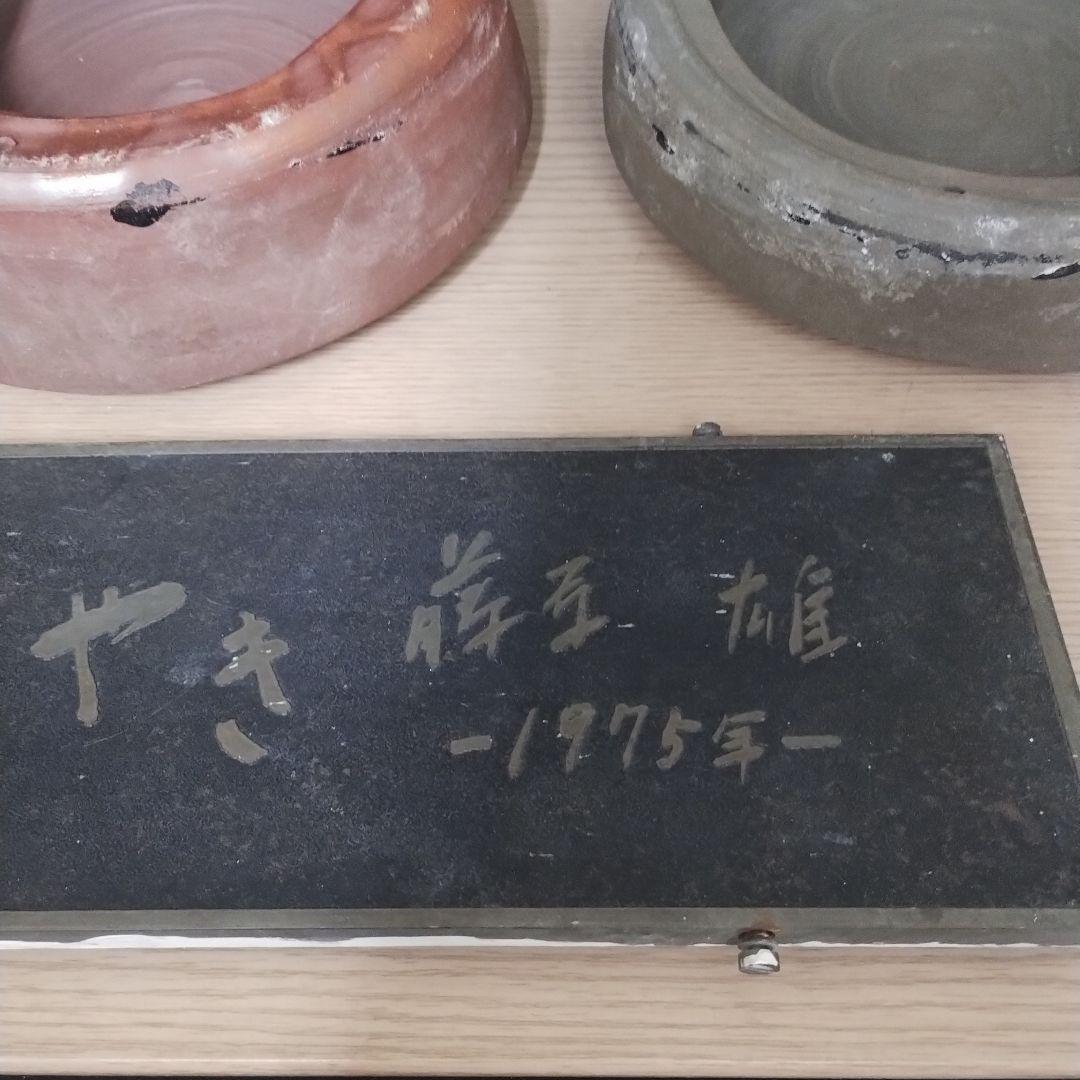 やき 藤原 雄
－1975年－